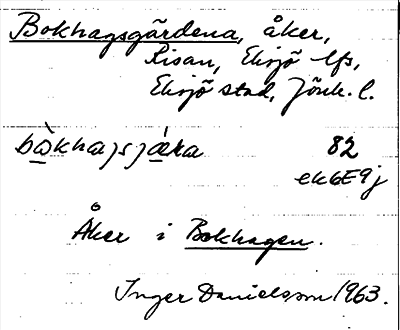 Bokhagsgärdena, åker,
Risan, Eksjö lfs,
Eksjö stad, Jönk. l.
bòkhajsjæ̀ra 82
ek6E9j
Åker i Bokhagen.
Inger Danielsson 1963.